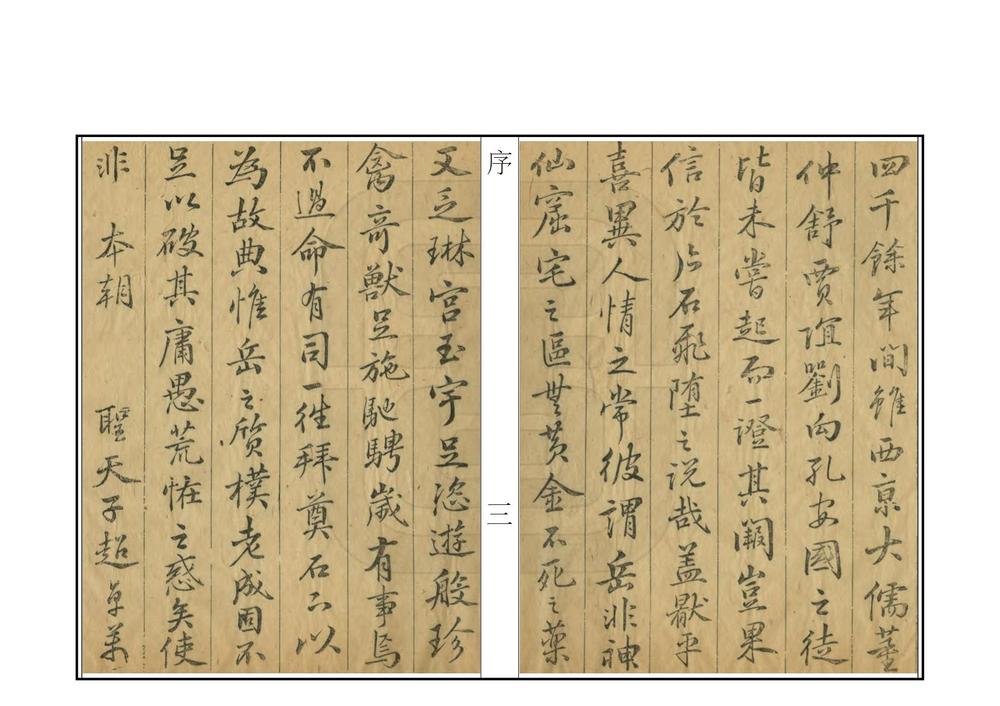 四千餘年間雖西京大儒董
仲舒賈誼劉向孔安國之徒
皆未嘗起而一證其闕豈果
信於片石飛墮之説哉蓋厭平
喜異人情之常彼謂岳非神
仙窟宅之區無黄金不死之藥
序
三
又乏琳宮玉宇足恣遊般珍
禽奇獸足施馳騁歲有事焉
不過命有司一徃拜奠石云以
為故典惟岳之質樸老成固不
足以破其庸愚荒怪之惑矣使
非 本朝 聖天子超卓萬